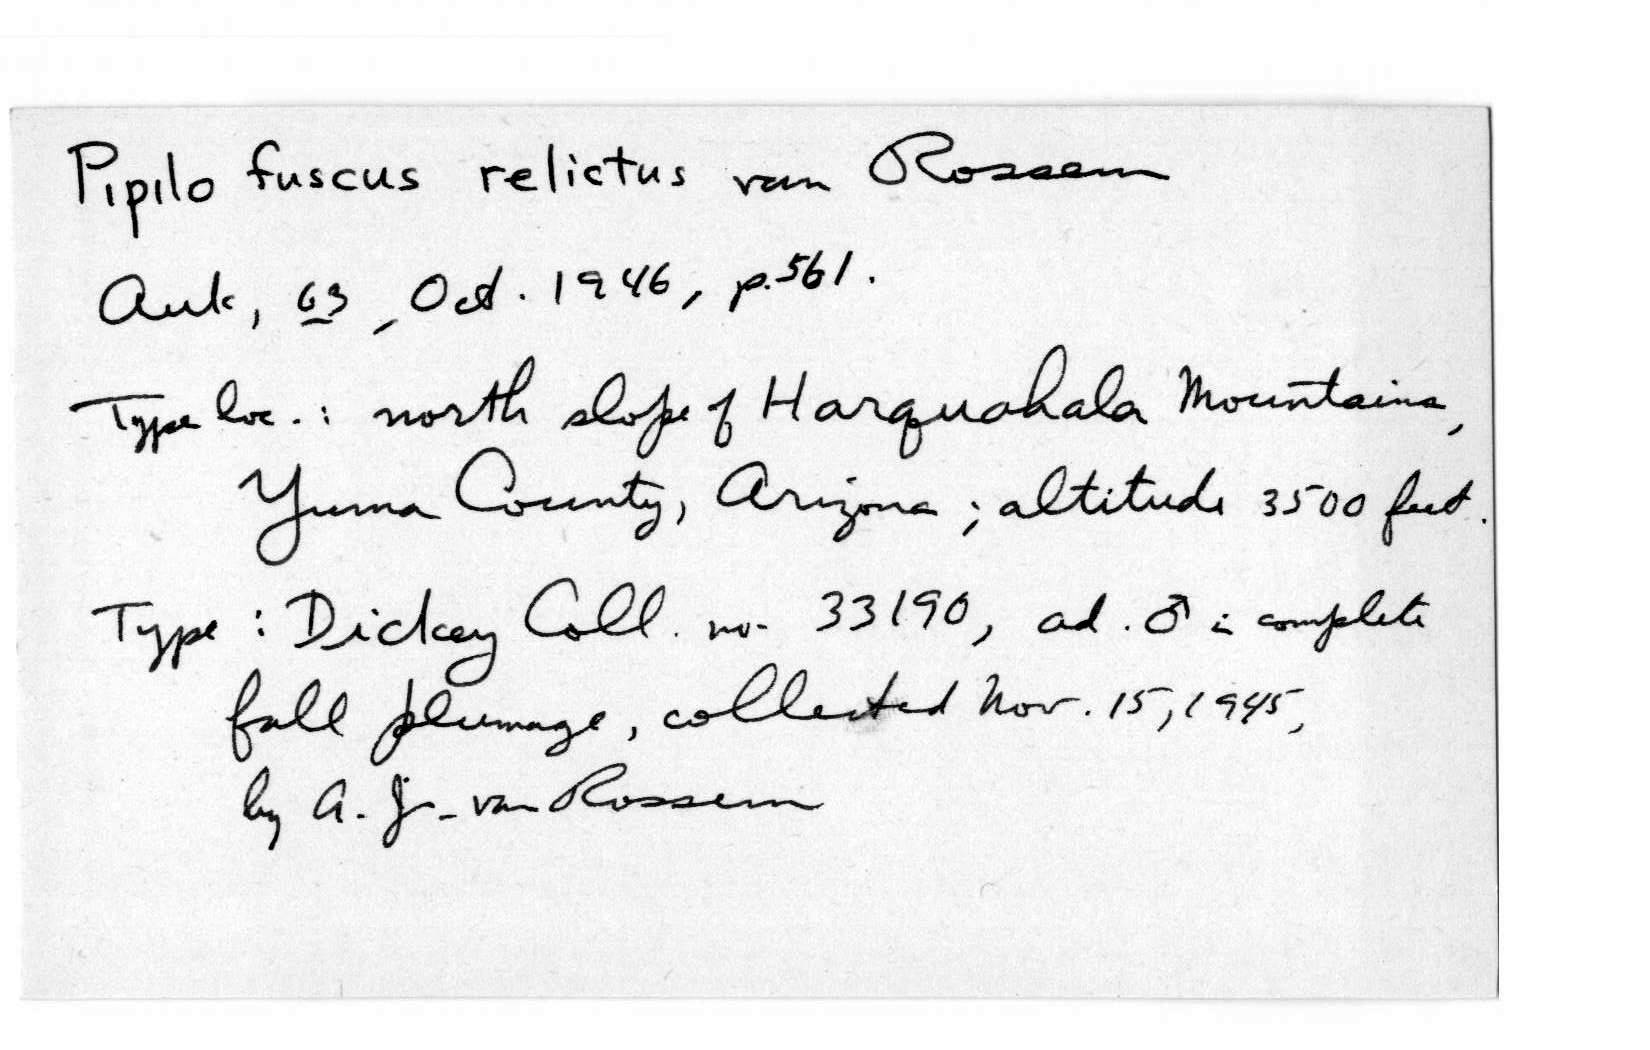 Pipilo fuscus relictus van Rossem
Auk, 63, Oct. 1946, p. 561.
Type loc.: north slope of Harquahala Mountains,
Yuma County, Arizona; altitude 3500 feet.
Type: Dickey Coll. no. 33190, ad. ♂ in complete
fall plumage, collected Nov. 15, 1945,
by A. J. van Rossem